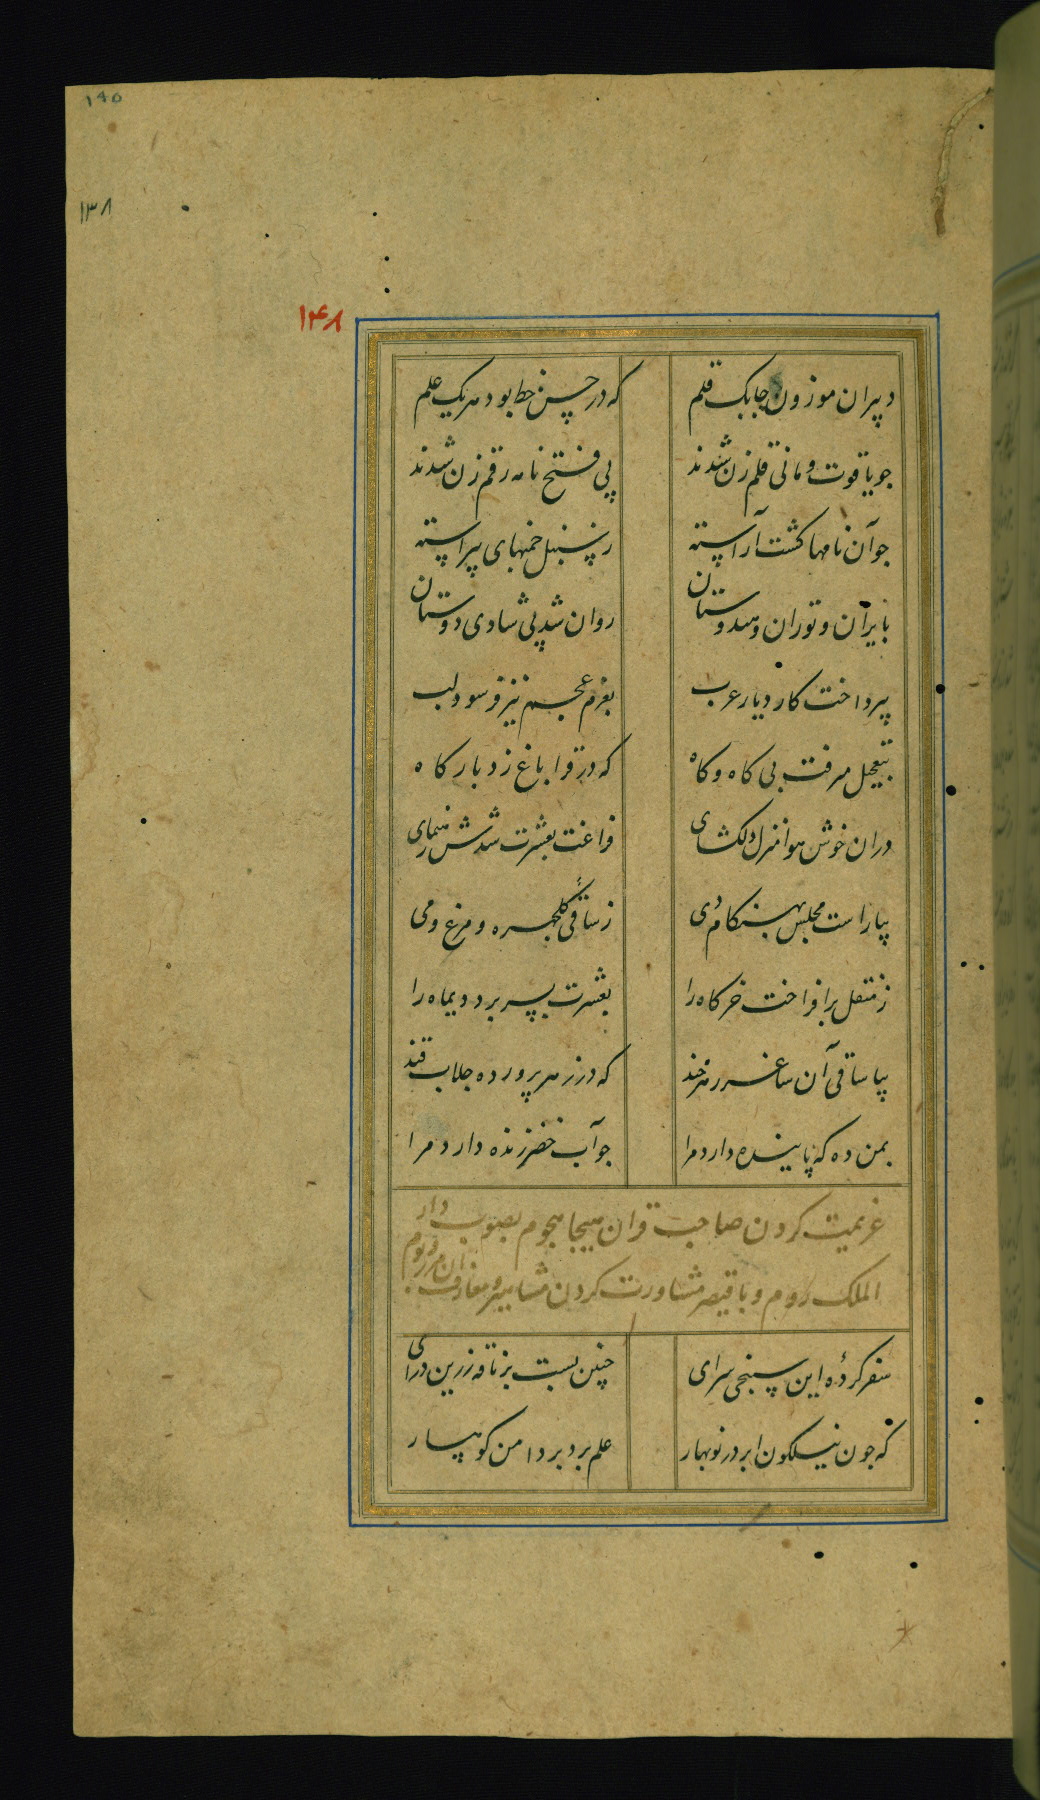 ۱۴۵
۱۳۸
۱۴۸
دبیران موزون جابک قلم که در حسن خط بود هر یک علم
جو یاقوت و مانی قلم زن شدند پی فتح نامه رقم زن شدند
جو آن نامها کشت آراسته ز سنبل خمهای پیراسته
بایران و توران و هندوستان روان شد پی شادی دوستان
بپرداخت کار دیار عرب بعزم عجم نیز فرسود لب
بتعجیل میرفت بی کاه و کاه که در قراباغ زد بارکاه
دران خوش هوا منزل دلکشای فراغت بعشرت شدش رهنمای
بیاراست مجلس بهنکام دی ز ساقی کلجهره و مرغ و می
ز منقل برافراخت خرکاه را بعشرت بسر برد دیماه را
بیا ساقی آن ساغر زهرخند که در زهر پرورده جلاب قند
بمن ده که پاینده دارد مرا جو آب خضر زنده دارد مرا
عزیمت کردن صاحب قران هیجا هجوم بصوب دار
الملک روم و با قیصر مشاورت کردن مشاهیر و معارف آن مرز و بوم
سفر کردهٔ این سپنجی سرای چنین بست بر ناقه زرین درای
که جون نیلکون ابر در نوبهار علم برد بر دامن کوهسار